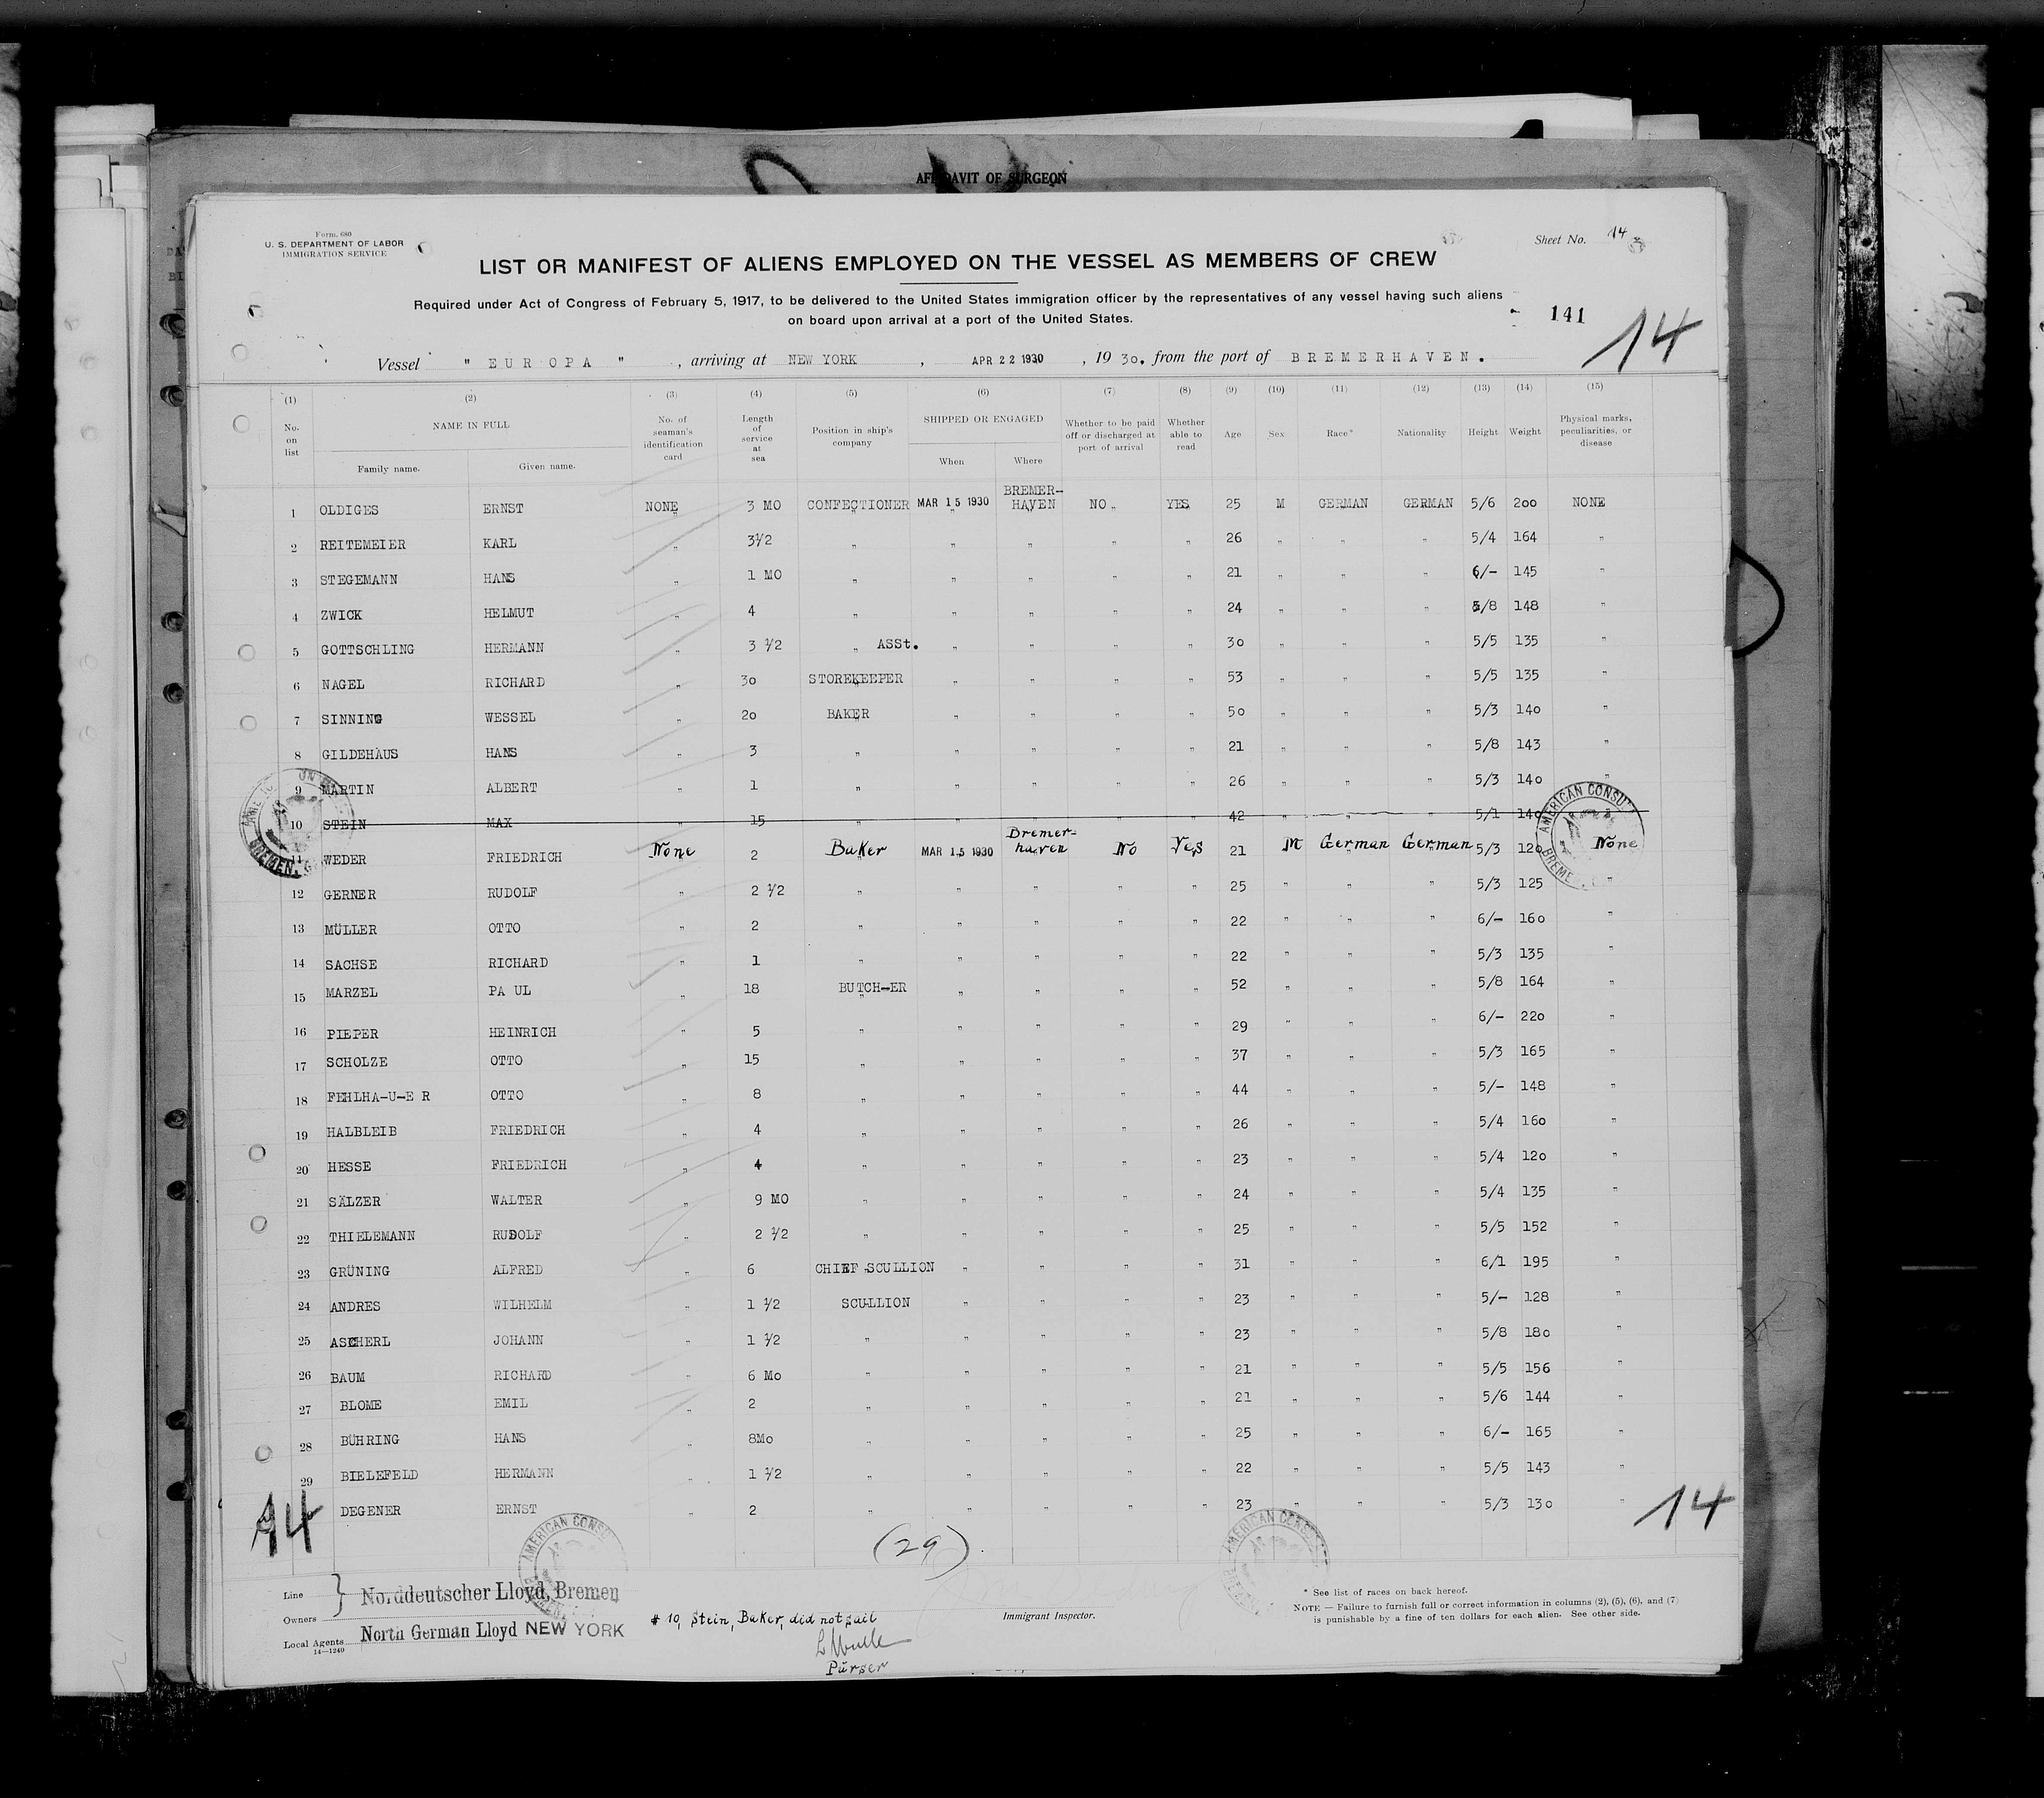 AFFIDAVIT OF SURGEON
Form. 680
U. S. DEPARTMENT OF LABOR
IMMIGRATION SERVICE
Sheet No. 14
LIST OR MANIFEST OF ALIENS EMPLOYED ON THE VESSEL AS MEMBERS OF CREW
Required under Act of Congress of February 5, 1917, to be delivered to the United States immigration officer by the representatives of any vessel having such aliens
on board upon arrival at a port of the United States.
141
14
Vessel " EUROPA ", arriving at NEW YORK, APR 22 1930, 1930. from the port of BREMERHAVEN.
(1) (2) (3) (4) (5) (6) (7) (8) (9) (10) (11) (12) (13) (14) (15)
No. on list NAME IN FULL Family name. Given name. No. of seaman's identification card Length of service at sea Position in ship's company SHIPPED OR ENGAGED When Where Whether to be paid off or discharged at port of arrival Whether able to read Age Sex Race* Nationality Height Weight Physical marks, peculiarities, or disease
1 OLDIGES ERNST NONE 3 MO CONFECTIONER MAR 15 1930 BREMER-HAVEN NO YES 25 M GERMAN GERMAN 5/6 200 NONE
2 REITEMEIER KARL " 3½ " " " " " 26 " " " 5/4 164 "
3 STEGEMANN HANS " 1 MO " " " " " 21 " " " 6/- 145 "
4 ZWICK HELMUT " 4 " " " " " 24 " " " 5/8 148 "
5 GOTTSCHLING HERMANN " 3 ½ " ASSt. " " " " 30 " " " 5/5 135 "
6 NAGEL RICHARD " 30 STOREKEEPER " " " " 53 " " " 5/5 135 "
7 SINNING WESSEL " 20 BAKER " " " " 50 " " " 5/3 140 "
8 GILDEHAUS HANS " 3 " " " " " 21 " " " 5/8 143 "
9 MARTIN ALBERT " 1 " " " " " 26 " " " 5/3 140 "
10 STEIN MAX " 15 " " " " " 42 " " " 5/1 140
11 WEDER FRIEDRICH None 2 Baker MAR 15 1930 Bremer-haven No Yes 21 M German German 5/3 120 None
12 GERNER RUDOLF " 2 ½ " " " " " 25 " " " 5/3 125 "
13 MÜLLER OTTO " 2 " " " " " 22 " " " 6/- 160 "
14 SACHSE RICHARD " 1 " " " " " 22 " " " 5/3 135 "
15 MARZEL PA UL " 18 BUTCH-ER " " " " 52 " " " 5/8 164 "
16 PIEPER HEINRICH " 5 " " " " " 29 " " " 6/- 220 "
17 SCHOLZE OTTO " 15 " " " " " 37 " " " 5/3 165 "
18 FEHLHA-U-E R OTTO " 8 " " " " " 44 " " " 5/- 148 "
19 HALBLEIB FRIEDRICH " 4 " " " " " 26 " " " 5/4 160 "
20 HESSE FRIEDRICH " 4 " " " " " 23 " " " 5/4 120 "
21 SÄLZER WALTER " 9 MO " " " " " 24 " " " 5/4 135 "
22 THIELEMANN RUDOLF " 2 ½ " " " " " 25 " " " 5/5 152 "
23 GRÜNING ALFRED " 6 CHIEF SCULLION " " " " 31 " " " 6/1 195 "
24 ANDRES WILHELM " 1 ½ SCULLION " " " " 23 " " " 5/- 128 "
25 ASCHERL JOHANN " 1 ½ " " " " " 23 " " " 5/8 180 "
26 BAUM RICHARD " 6 Mo " " " " " 21 " " " 5/5 156 "
27 BLOME EMIL " 2 " " " " " 21 " " " 5/6 144 "
28 BÜHRING HANS " 8Mo " " " " " 25 " " " 6/- 165 "
29 BIELEFELD HERMANN " 1 ½ " " " " " 22 " " " 5/5 143 "
DEGENER ERNST " 2 " " " " " 23 " " " 5/3 130 "
14
14
(29).
AMERICAN CONSU
BREMEN
Line Owners Norddeutscher Lloyd, Bremen
Local Agents North German Lloyd NEW YORK
14—1240
# 10, Stein, Baker, did not sail
Purser
Immigrant Inspector.
* See list of races on back hereof.
NOTE — Failure to furnish full or correct information in columns (2), (5), (6), and (7)
is punishable by a fine of ten dollars for each alien. See other side.